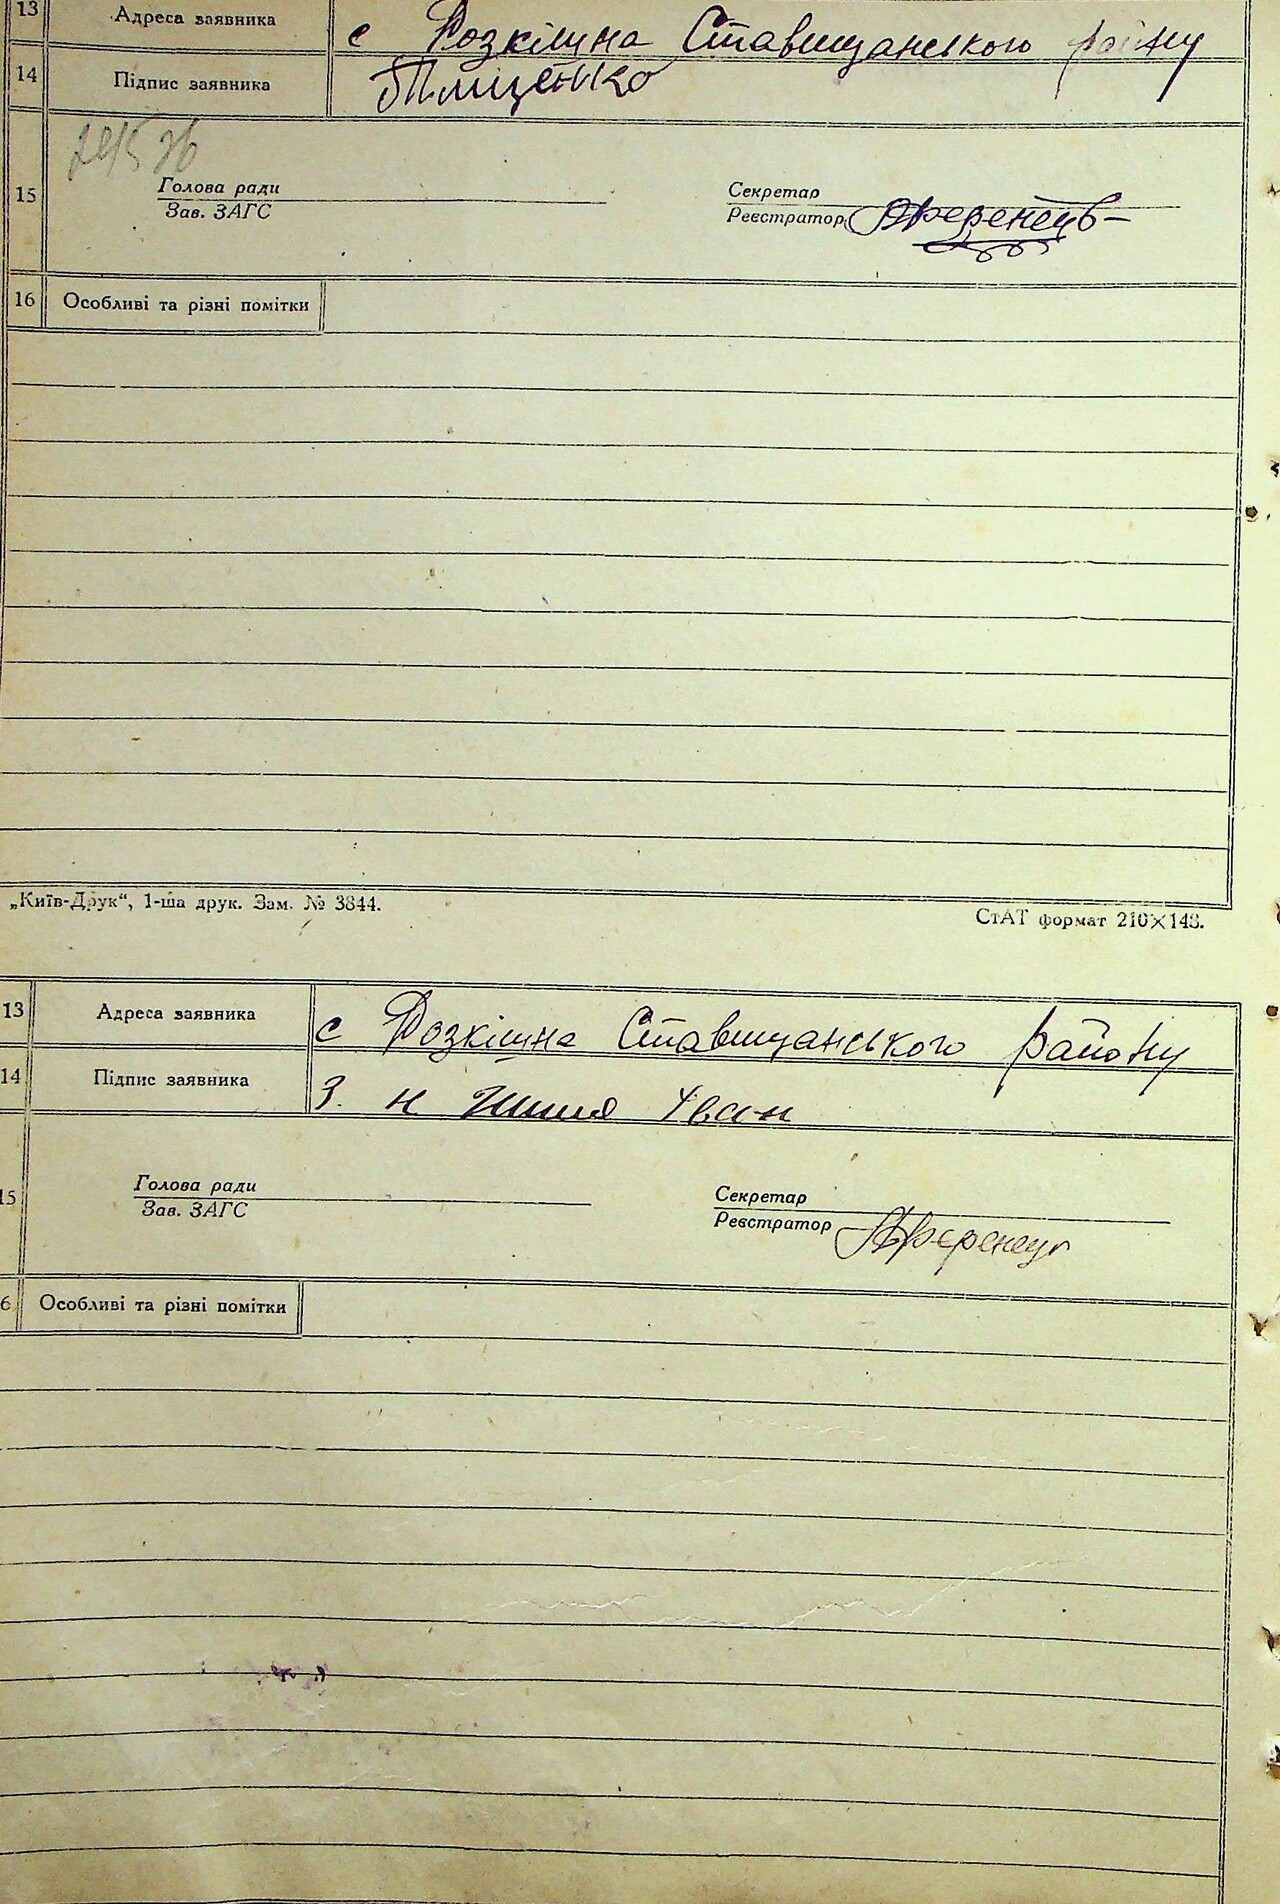 13 Адреса заявника с Розкішна Ставищанського району
14 Підпис заявника Тищенко
15
Голова ради
Зав. ЗАГС
Секретар
Реєстратор
16 Особливі та різні помітки
„Київ-Друк“, 1-ша друк. Зам. № 3844.
СтАТ формат 210×148.
13 Адреса заявника с Розкішна Ставищанського району
14 Підпис заявника З. н Іван
15
Голова ради
Зав. ЗАГС
Секретар
Реєстратор
6 Особливі та різні помітки